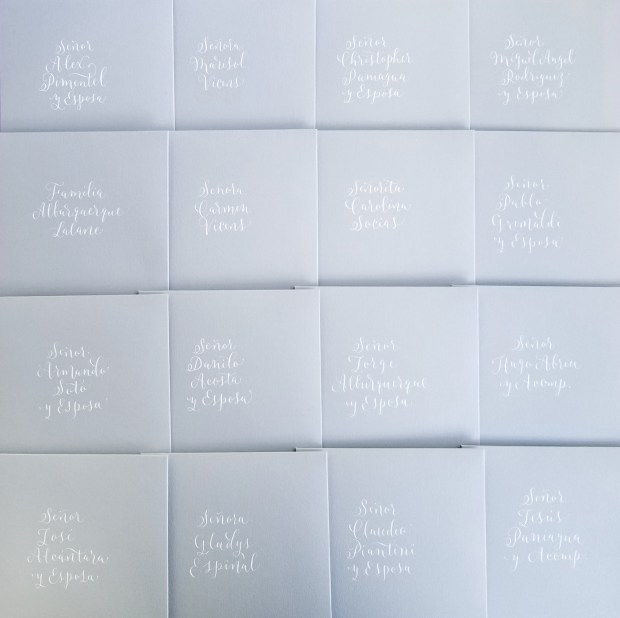 Señor
Alex
Pimentel
y Esposa
Señora
Marisol
Vicens
Señor
Christopher
Paniagua
y Esposa
Señor
Miguel Angel
Rodriguez
y Esposa
Familia
Alburquerque
Lalane
Señora
Carmen
Vicens
Señorita
Carolina
Socias
Señor
Pablo
Grimaldi
y Esposa
Señor
Armando
Soto
y Esposa
Señor
Danilo
Acosta
y Esposa
Señor
Jorge
Alburquerque
y Esposa
Señor
Hugo Abreu
y Acomp.
Señor
José
Alcantara
y Esposa
Señora
Gladys
Espinal
Señor
Claudio
Piantini
y Esposa
Señor
Jesús
Paniagua
y Acomp.